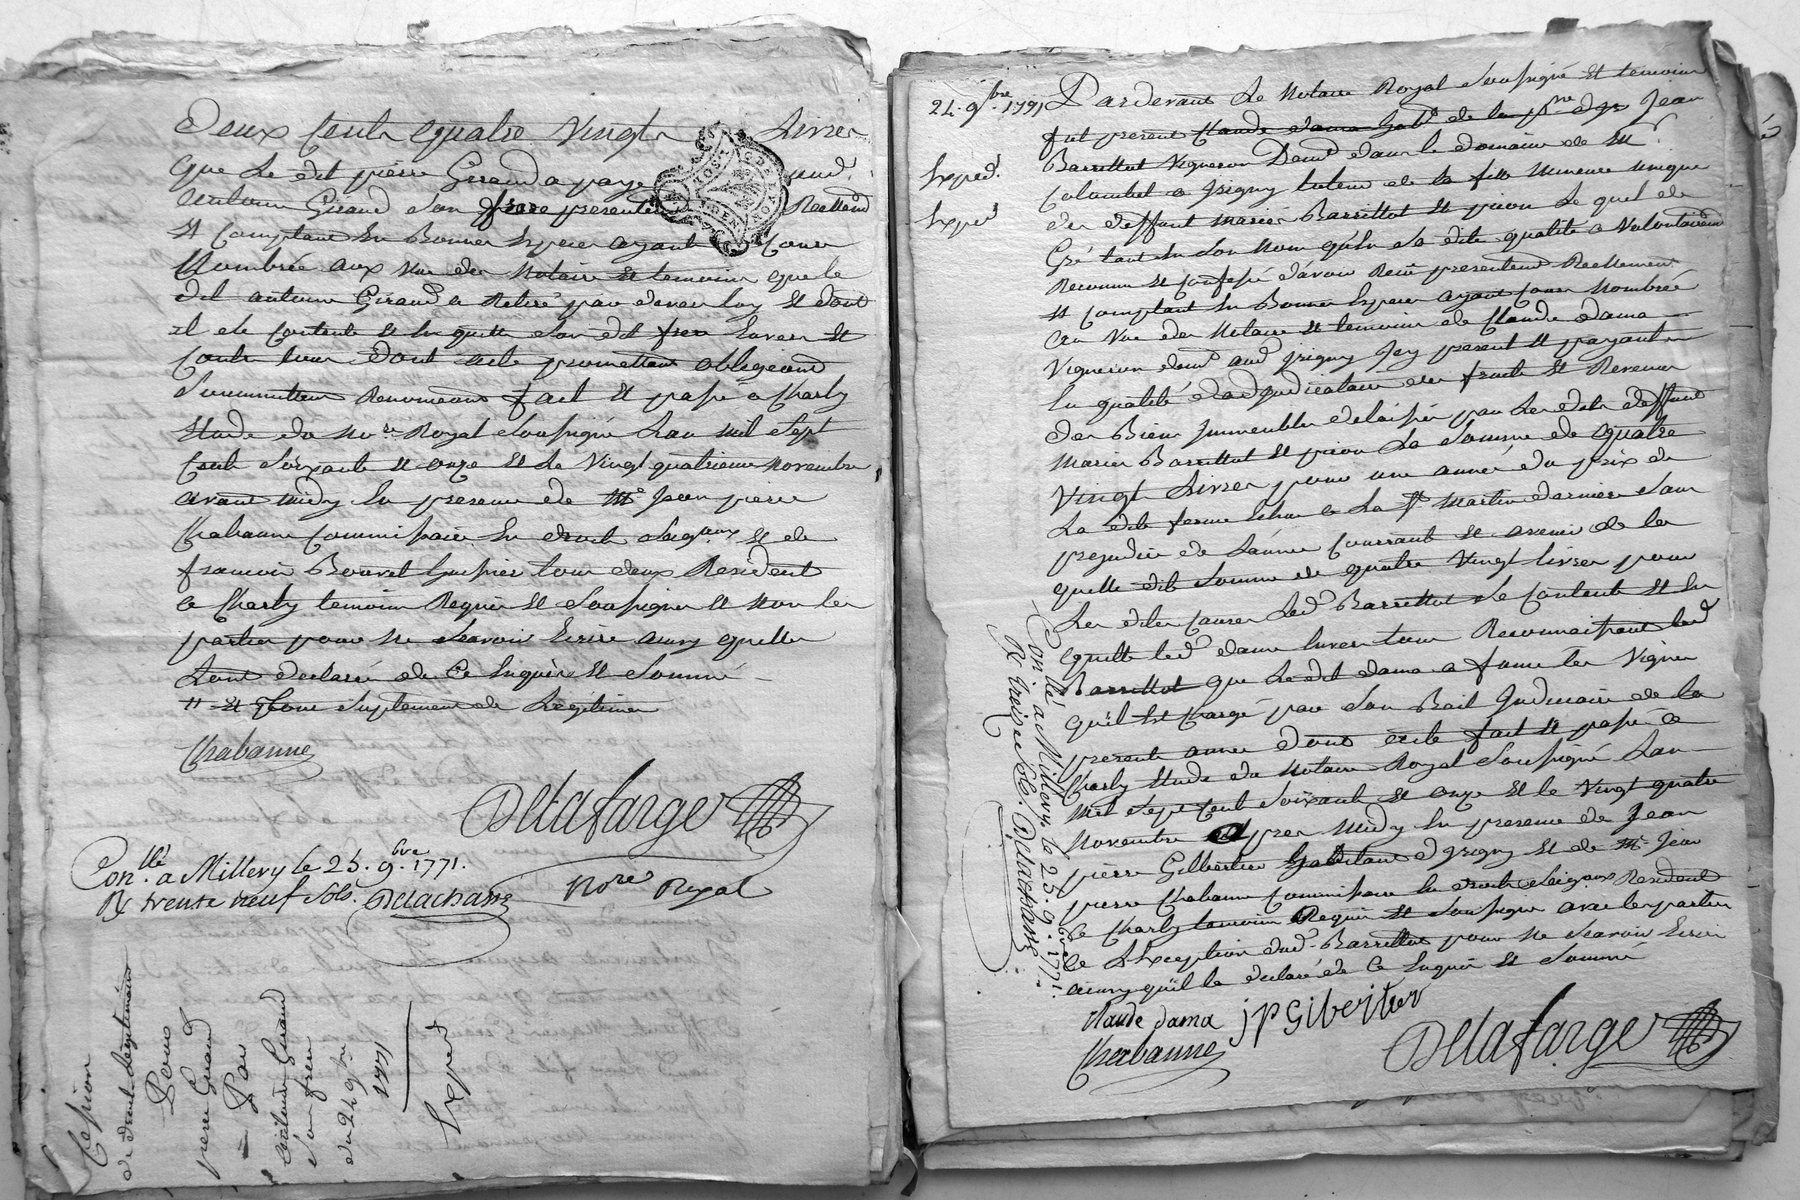 deux Cents quatre Vingts Livres
que Le dit pierre Giraud a payé
Antoine Giraud son frere present Reellem.t
Et Comptant En Bonnes Especes ayant Cours
Nombrée aux vue des Notaire Et temoins que le
dit antoine Giraud a Retiré par devers luy Et dont
il se Contente Et En quitte son dit frere Envers Et
Contre tous dont acte promettant obligeant
Soumettant Renonceant fait Et passé a Charly
Etude du No.re Royal Soussigné Lan mil Sept
Cent Soixante Et onze Et Le Vingt quatrieme Novembre
avant midy En presence de M.e Jean pierre
Chabanne Commissaire En droits Seig.aux Et de
francois Bouvet huissier tous deux Resident
a Charly temoins Requis Et Soussignes Et Non les
parties pour Ne Scavoir Ecrire ainsy quelles
Lont declarée de Ce Enquises Et Sommé
" Et suplement de Legitime
Chabanne
Delafarge
No.re Royal
Con.llé a Millery le 25. 9.bre 1771.
R/ trente neuf sols. Delachassé
Cession
de droits Legitimaire
Pour
pierre Giraud
Par
antoine Giraud
Son frere
du 24 9bre
1771
Exped
24. 9.bre 1771
Exped.
Exped
Pardevant Le Notaire Royal Soussigné Et temoins
fut present Jean
Barrettot Vigneron Dem.t dans le domaine de M.r
Colombet a Irigny tuteur de la fille Mineure unique
des deffunt maries Barrettot Et pision Le quel de
Gré tant En Son Nom qu'En Sa dite qualité a Volontairem.t
Reconnu Et Confessé d'avoir Recû presentem.t Reellement
Et Comptant En Bonnes Especes ayant Cours Nombrée
En Vue des Notaire Et temoins de Claude dama
Vigneron dem.t aud. Irigny Icy present Et payant
En qualité d'adjudicataire des fruits Et Revenus
des Biens Immeubles delaissés par Les dits deffunt
maries Barrettot Et pision La Somme de quatre
Vingt Livres pour une année du prix de
La dite ferme Echue a La St martin derniere Sans
prejudice de L'année Courrante Et avenir de la
quelle dite Somme de quatre Vingt livres pour
Les dites Causes Led. Barrettot Se Contente Et En
quitte led. dama Envers tous Reconnaissant led
Barrettot que Le dit dama a fumé les Vignes
qu'il Est Chargé par Son Bail Judiciaire de la
presente année dont acte fait Et passé a
Charly Etude du Notaire Royal Soussigné Lan
mil Sept Cent Soixante Et onze Et le Vingt quatre
Novembre apres midy En presence de Jean
pierre Gilbertier habitant d'Irigny Et de M.e Jean
pierre Chabanne Commissaire En droits Seigaux Resident
a Charly temoins Requis Et Soussignes avec les parties
a L'Exception dud. Barrettot pour Ne Scavoir Ecrire
ainsy qu'il la declaré de Ce Enquis Et Sommé
Con.llé a Millery le 25. 9.bre 1771.
R/ treize sols. Delachassé
claude dama jpGibertier
Chabanne
Delafarge